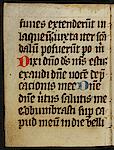 funes extenderūt in
laqueū: iuxta iter scā
dalū posuerūt po m
Dixi dn̄o ds̄ ms̄ es tu
exaudi dn̄e uocē dep̄
cacionis mee Dn̄e
dn̄e ūtus salutis me
obūbrasti sup ca
pud meū in die belli